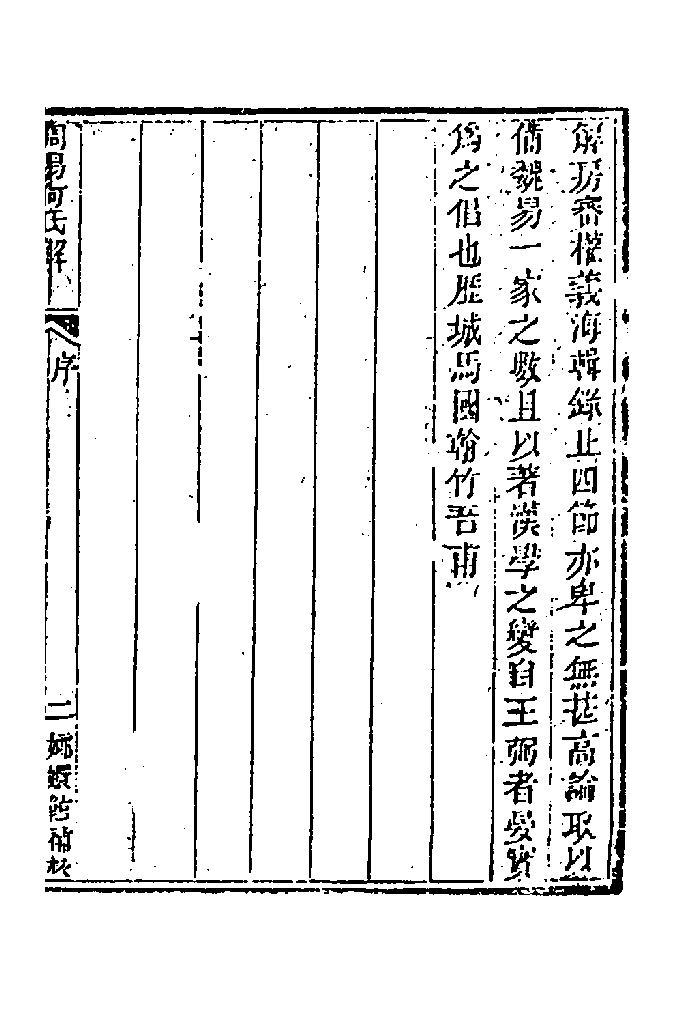 解房審權義海輯錄止四節亦卑之無甚高論取以
備魏易一家之數且以著漢學之變自王弼者晏實
爲之倡也歷城馬國翰竹吾甫
周易何氏解
序
二
嫏嬛館補校